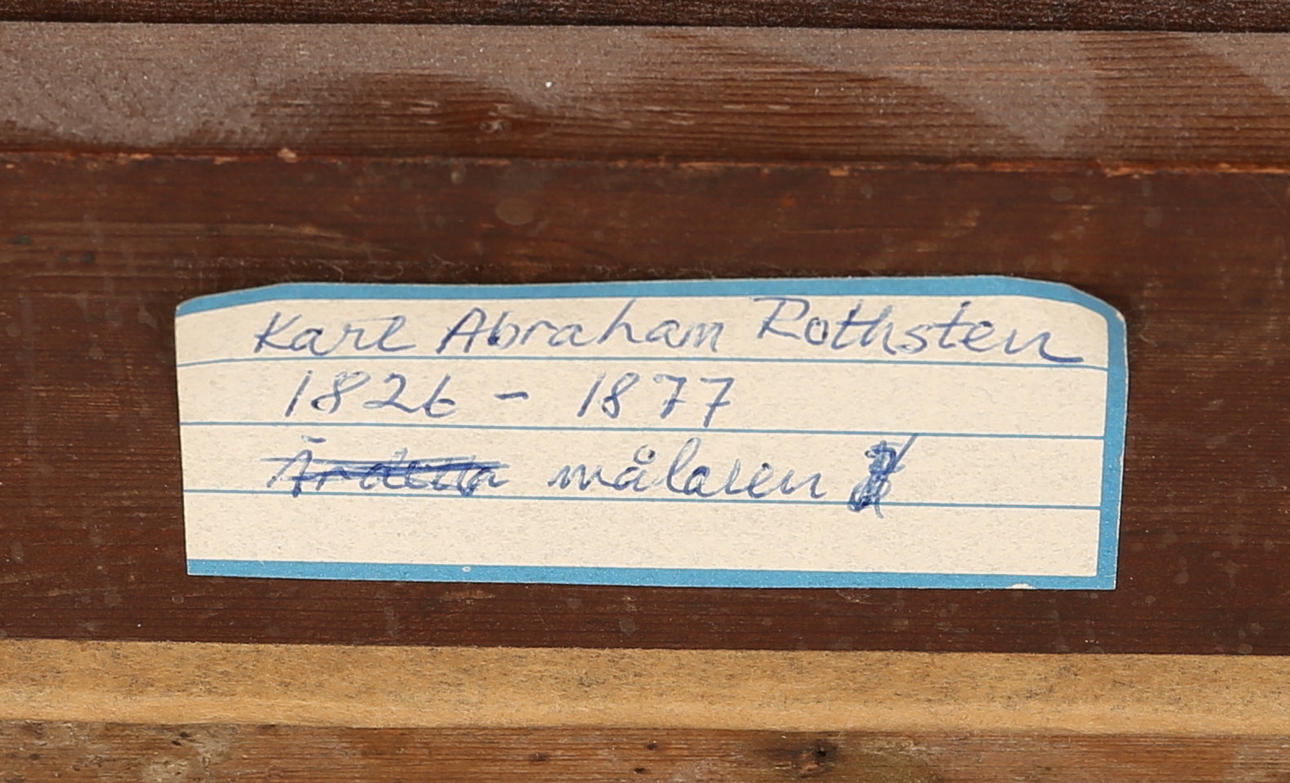 Karl Abraham Rothsten
1826 - 1877
målaren